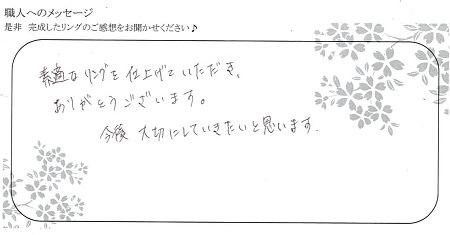 職人へのメッセージ
是非 完成したリングのご感想をお聞かせください♪
素適なリングを仕上げていただき、
ありがとうございます。
今後 大切にしていきたいと思います.